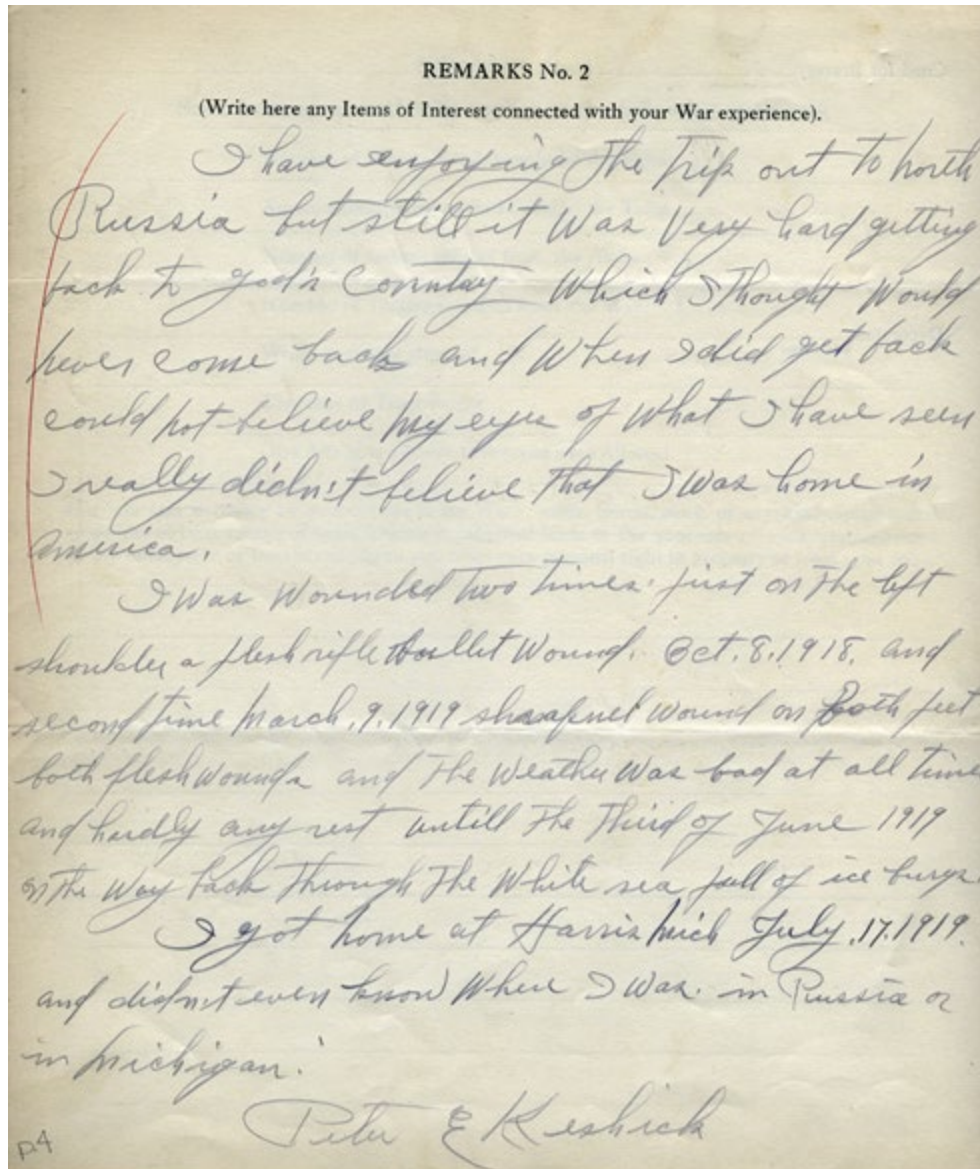 REMARKS No. 2
(Write here any Items of Interest connected with your War experience).
I have enjoying the trip out to north
Russia but still it was Very hard getting
back to god's Country Which I thought Would
never come back and When I did get back
could not believe my eyes of What I have seen
I really didn't believe that I was home in
America.
I Was Wounded two times. first on the left
shoulder a flesh rifle bullet Wound. Oct. 8. 1918. and
second time March. 9. 1919 shrapnel wound on Both feet
both flesh wounds and the weather Was bad at all time
and hardly any rest untill the third of June 1919
on the Way back through the White sea full of ice burgs.
I got home at Harris Mich July. 17. 1919.
and didn't even know Where I Was. in Russia or
in Michigan.
Peter E Keshick
p.4